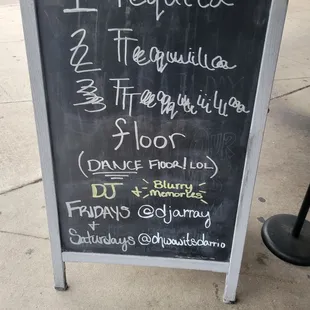 1 Tequila
2 Tequila
3 Teequiiila
floor
(DANCE FLOOR/LOL)
DJ + Blurry
Memories
FRIDAYS @djarray
+
Saturdays @ohwowitsdarrio